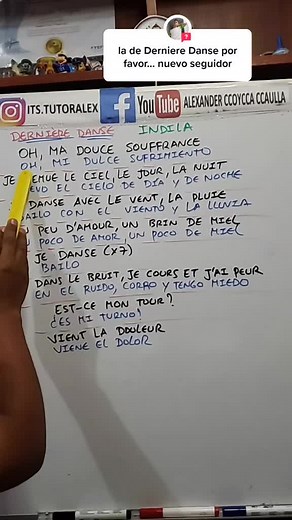 la de Derniere Danse por
favor... nuevo seguidor
ITS.TUTORALEX
YouTube
ALEXANDER CCOYCCA CCAULLA
DERNIÈRE DANSE INDILA
OH, MA DOUCE SOUFFRANCE
OH, MI DULCE SUFRIMIENTO
JE REMUE LE CIEL, LE JOUR, LA NUIT
EL CIELO DE DIA Y DE NOCHE
DANSE AVEC LE VENT, LA PLUIE
BAILO CON EL VIENTO Y LA LLUVIA
PEU D'AMOUR, UN BRIN DE MIEL
POCO DE AMOR, UN POCO DE MIEL
JE DANSE (x7)
BAILO
DANS LE BRUIT, JE COURS ET J'AI PEUR
EN EL RUIDO, CORRO Y TENGO MIEDO
EST-CE MON TOUR?
¿ES MI TURNO?
VIENT LA DOULEUR
VIENE EL DOLOR